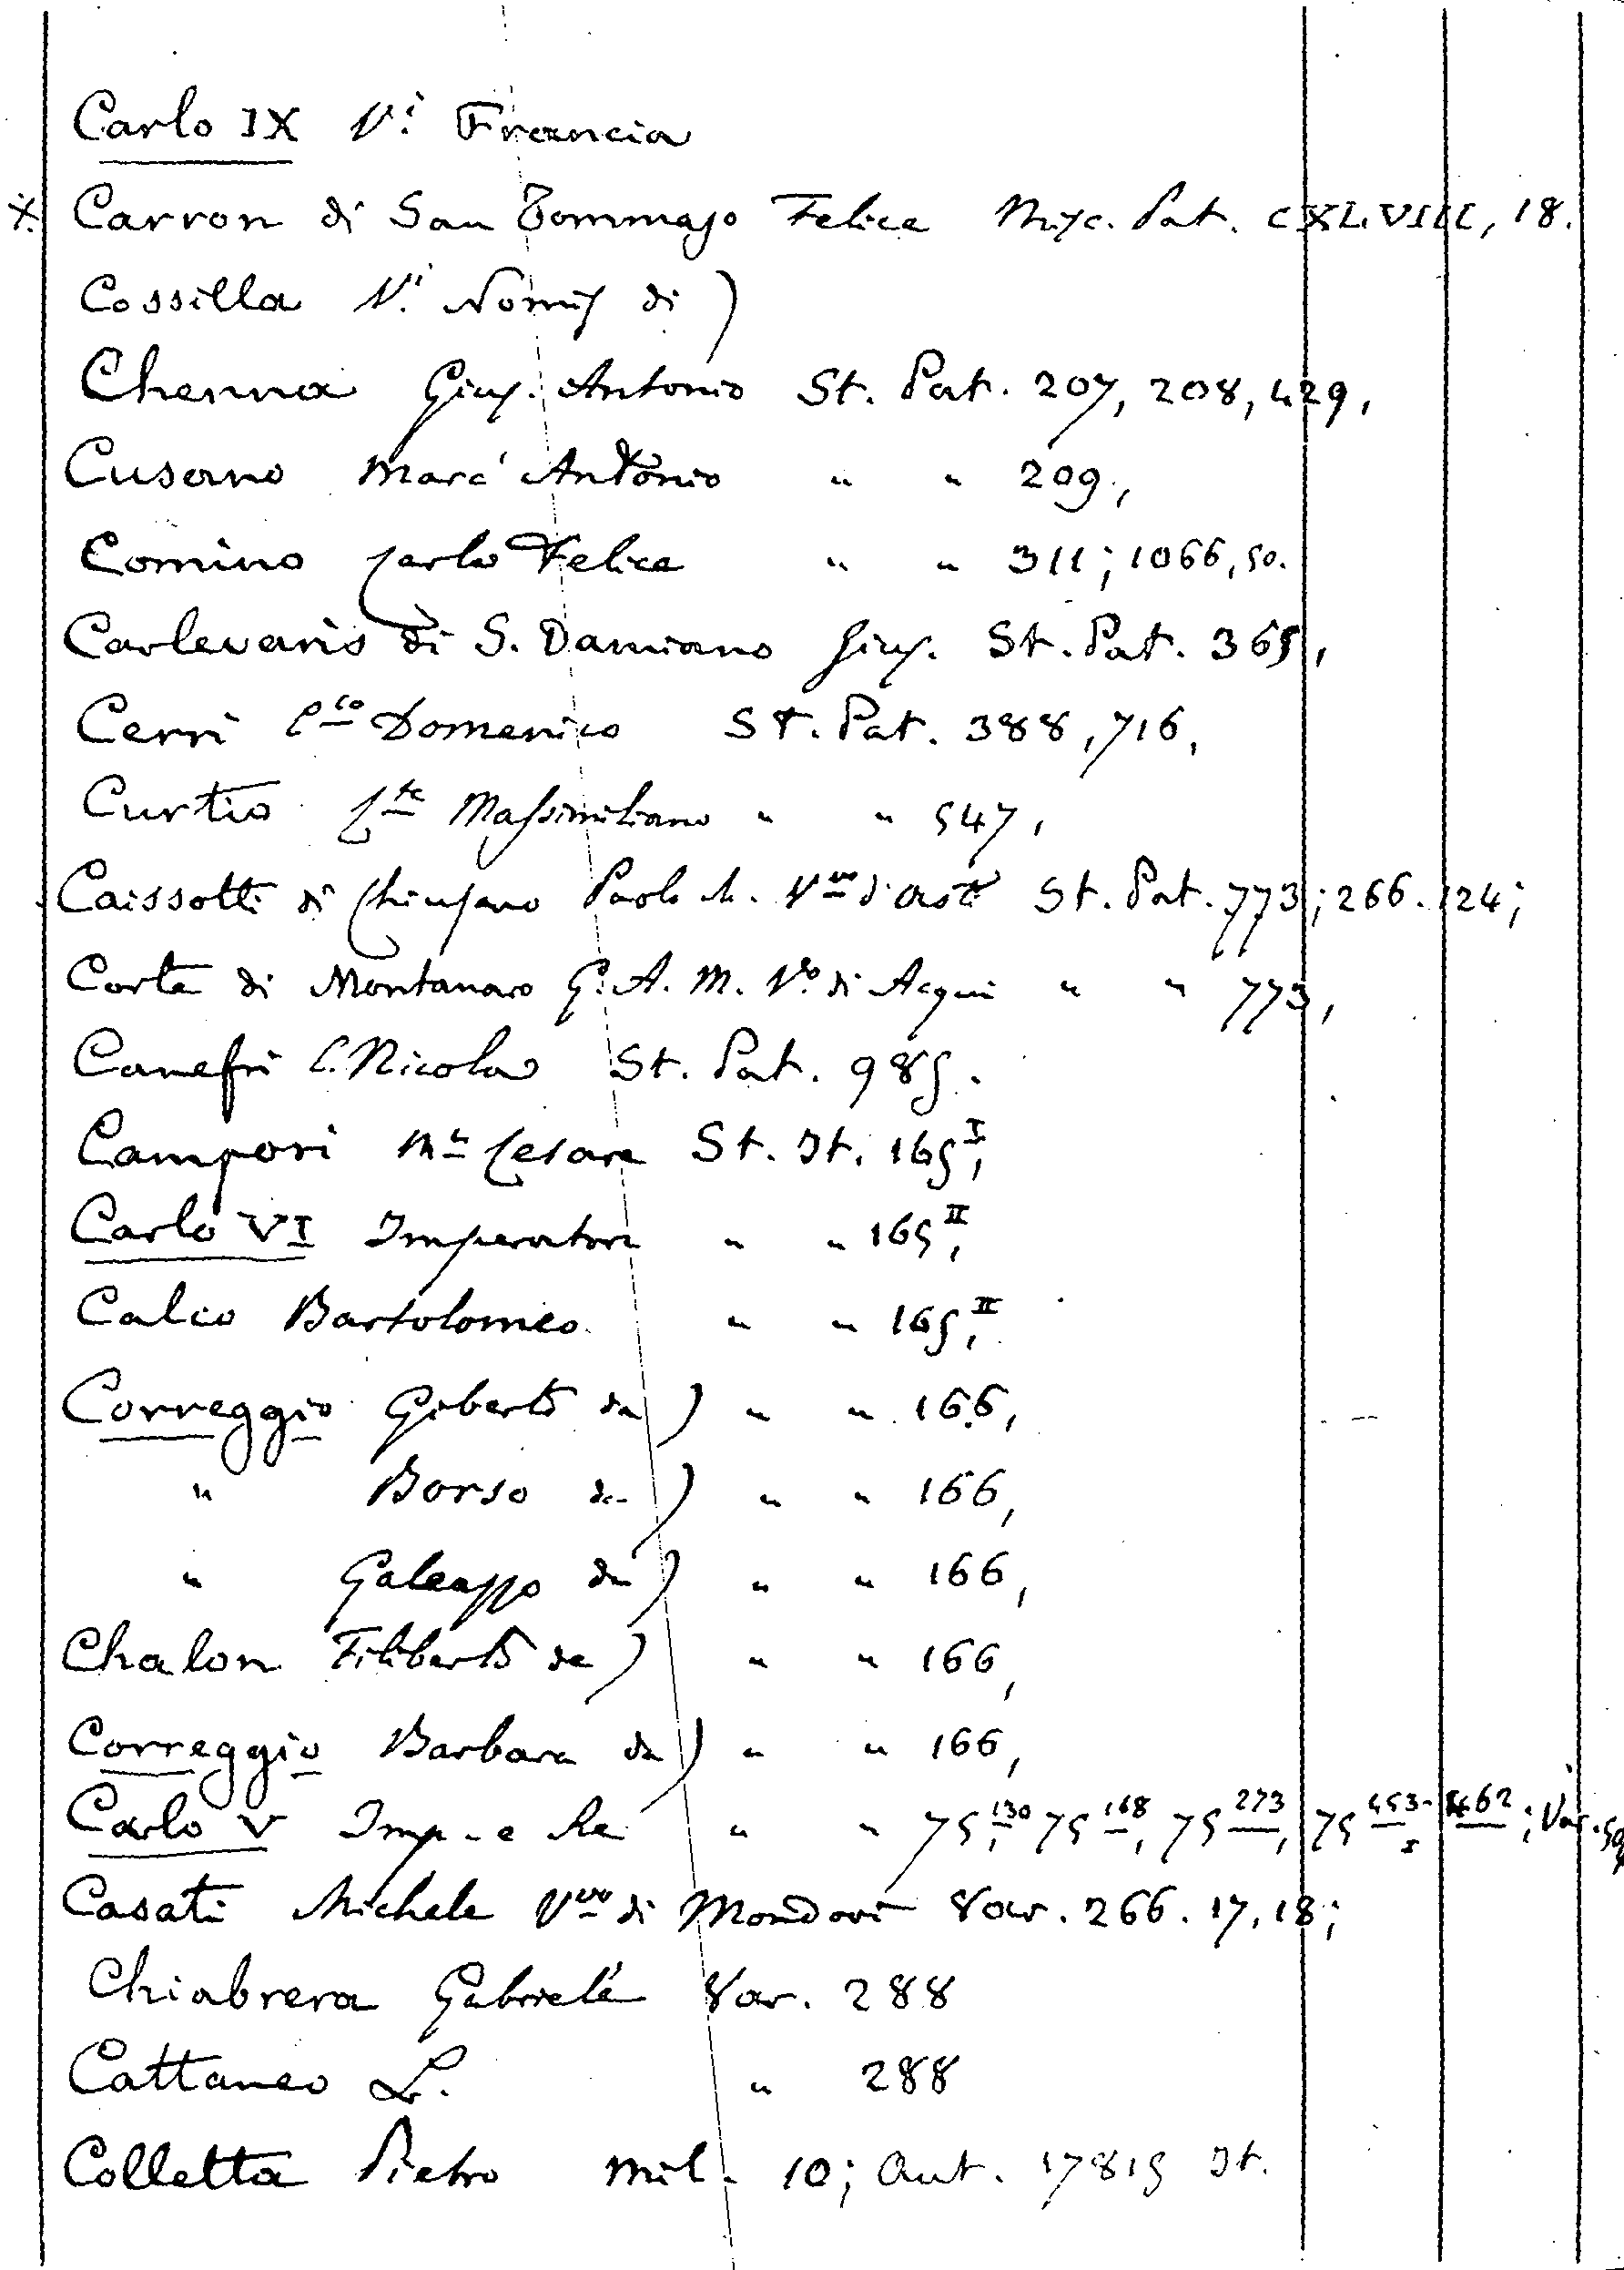 Carlo IX V.i Francia
Carron di San Tommaso Felice Misc. Pat. CXLVIII, 18.
Cossilla V.i Nomis di )
Chenna Gius. Antonio St. Pat. 207, 208, 429,
Cusano Marc'Antonio " " 209,
Comino Carlo Felice " " 311; 1066, 50.
Carlevaris di S. Damiano Gius. St. Pat. 365,
Cerri Cco Domenico St. Pat. 388, 716,
Curtio Massimiliano " " 547,
Caissotti di Chiusano Paolo M. Vvo d'Asti St. Pat. 773; 266. 124;
Corte di Montanaro G. A. M. Vo di Acqui " " 773,
Canefri C. Nicola St. Pat. 985.
Campori Me Cesare St. It. 165 I,
Carlo VI Imperatore " " 165 II,
Calco Bartolomeo " " 165 II,
Correggio Giberto da ) " " 166,
" Borso da ) " " 166,
" Galeazzo da ) " " 166,
Chalon Filiberto de ) " " 166,
Correggio Barbara da ) " " 166,
Carlo V Imp. e Re " " 75 130, 75 168, 75 273, 75 453-I 462; Var.
Casati Michele Vvo di Mondovì Var. 266. 17, 18;
Chiabrera Gabriele Var. 288
Cattaneo L. " 288
Colletta Pietro Mil. 10; Aut. 17815 It.